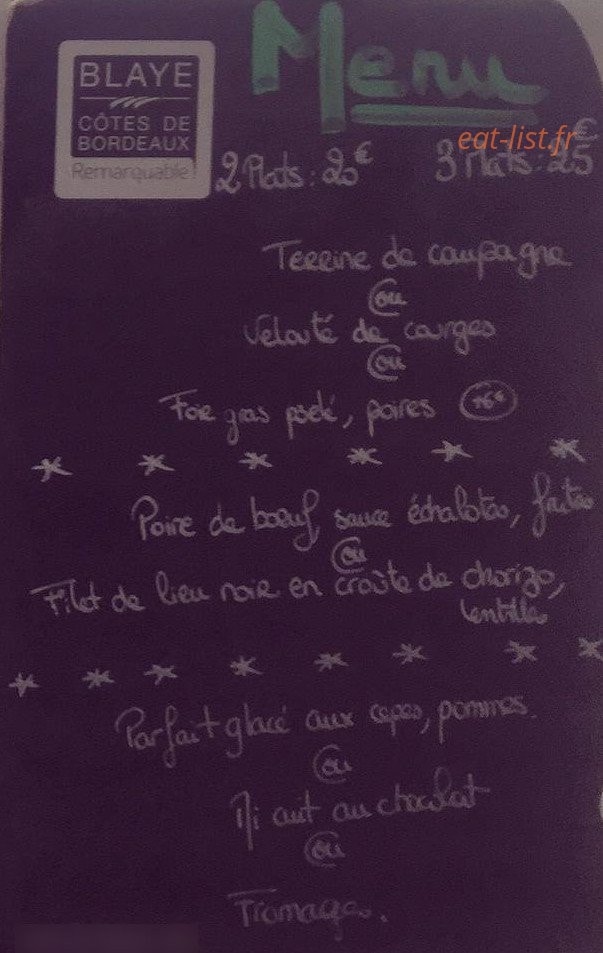 BLAYE
CÔTES DE
BORDEAUX
Remarquable!
Menu
eat-list.fr
2 Plats : 25€ 3 Plats : 25€
Terrine de campagne
ou
Velouté de courges
ou
Foie gras poelé, poires +6€
Poire de boeuf, sauce échalotes, frites
ou
Filet de lieu noir en croûte de chorizo,
lentilles
Parfait glacé aux cepes, pommes.
ou
Mi cuit au chocolat
ou
Fromages.